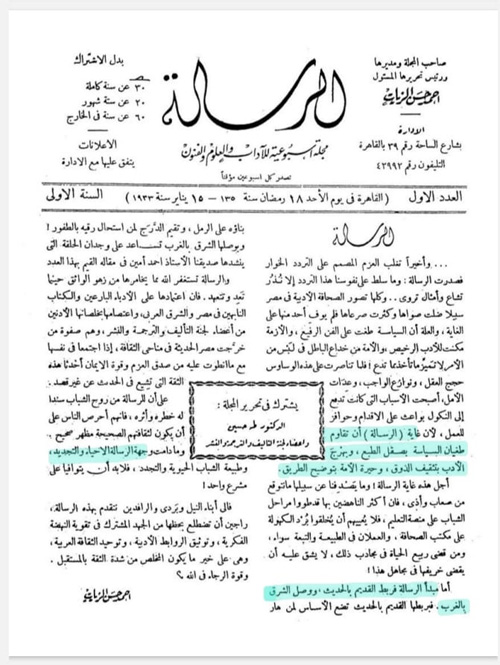 صاحب المجلة ومديرها
ورئيس تحريرها المسئول
احمد حسن الزيات
الادارة
بشارع الساحة رقم ٣٩ بالقاهرة
التليفون رقم ٤٢٩٩٢
الرسالة
مجلة أسبوعية للآداب والعلوم والفنون
تصدر كل اسبوعين مؤقتاً
بدل الاشتراك
٣٠ عن سنة كاملة
٢٠ عن ستة شهور
٦٠ عن سنة في الخارج
الاعلانات
يتفق عليها مع الادارة
العدد الاول
(القاهرة في يوم الأحد ١٨ رمضان سنة ١٣٥٠ — ١٥ يناير سنة ١٩٣٣)
السنة الاولى
الرسالة
... وأخيراً تغلب العزم المصمم على التردد الخوار
فصدرت الرسالة : وما سلط على نفوسنا هذا التردد إلا نُذُر
تشاع وأمثال تروى... وكلها تصور الصحافة الأدبية في مصر
سبيلا ضلت صواها وكثرت صرعاها فلم يوف أحد منها على
الغاية ، والعلة أن السياسة طغت على الفن الرفيع ، والأزمة
مكنت للأدب الرخيص ، والأمة من خداع الباطل في لبس من
الأمر لا تميز ما تأخذ مما تدع ! فلما تناصرت على هذه الوساوس
حجج العقل ، ونوازع الواجب ، وعدات
الأمل ، أصبحت الأسباب التي كانت تدفع
إلى النكول بواعث على الاقدام وحوافز
للعمل ، لأن غاية (الرسالة) أن تقاوم
طغيان السياسة بصقل الطبع ، وبهرج
الأدب بتثقيف الذوق ، وحيرة الأمة بتوضيح الطريق .
أجل هذه غاية الرسالة ! وما يصدفنا عن سبيلها ما نتوقع
من صعاب وأذى ، فأن أكثر الناهضين بها قد طووا مراحل
الشباب على منصة التعليم ، فلا يعييهم أن يخلقوا بُرَد الكهولة
على مكتب الصحافة ، والعملان في الطبيعة والتبعة سواء ،
ومن قضى ربيع الحياة في مجادب ذلك ، لا يشق عليه أن
يقضى خريفها في مجاهل هذا !
أما مبدأ الرسالة فربط القديم بالحديث ، ووصل الشرق
بالغرب . فبربطها القديم بالحديث تضع الأساس لمن هار
بناؤه على الرمل ، وتقيم الدرَج لمن استحال رقيه بالطفور !
وبوصلها الشرق بالغرب تساعد على وجدان الحلقة التي
ينشدها صديقنا الأستاذ احمد أمين في مقاله القيم بهذا العدد
والرسالة تستغفر الله مما يخامرها من زهو الواثق حينما
تعِد وتتعهد . فان اعتمادها على الأدباء البارعين والكتاب
النابهين في مصر والشرق العربي ، واعتصامها بخلصائها الأدنين
من أعضاء لجنة التأليف والترجمة والنشر ، وهم صفوة من
خرجت مصر الحديثة في مناحي الثقافة ، إذا اجتمعا في نفسها
مع ما انطوت عليه من صدق العزم وقوة الايمان أحدثا هذه
الثقة التي تشيع في الحديث عن غير قصد .
على أن للرسالة من روح الشباب سندا
له خطره وأثره ، فانهم أحرص الناس على
أن يكون لثقافتهم الصحيحة مظهر صحيح .
وما دامت وجهة الرسالة الاحياء والتجديد ،
وطبيعة الشباب الحيوية والتجدد ، فلا بد أن يتوافيا على
مشرع واحد !
فالى أبناء النيل وبَرَدى والرافدين نتقدم بهذه الرسالة ،
راجين أن تضطلع بحظها من الجهد المشترك في تقوية النهضة
الفكرية ، وتوثيق الروابط الأدبية ، وتوحيد الثقافة العربية ،
وهي على خير ما يكون المخلص من شدة الثقة بالمستقبل .
وقوة الرجاء في الله ؟
احمد حسن الزيات
يشترك في تحرير المجلة :
الدكتور طه حسين
وأعضاء لجنة التأليف والترجمة والنشر